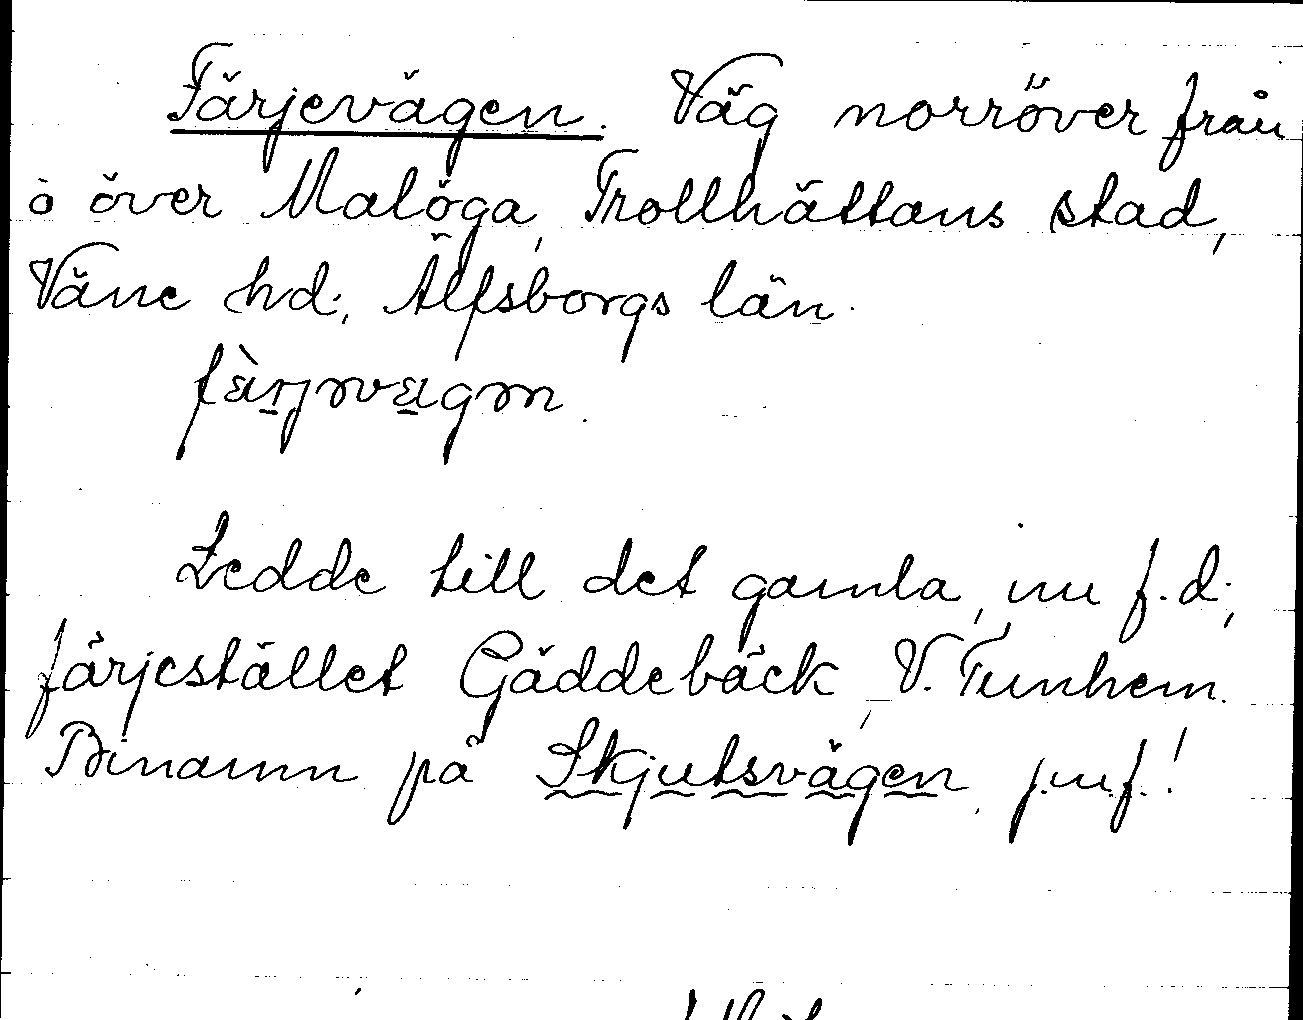 Färjevägen. Väg norröver från
ö över Malöga, Trollhättans stad,
Väne hd., Älfsborgs län.
Ledde till det gamla, nu f.d.,
färjestället Gäddebäck, V. Tunhem.
Binamn på Skjutsvägen, jmf.!